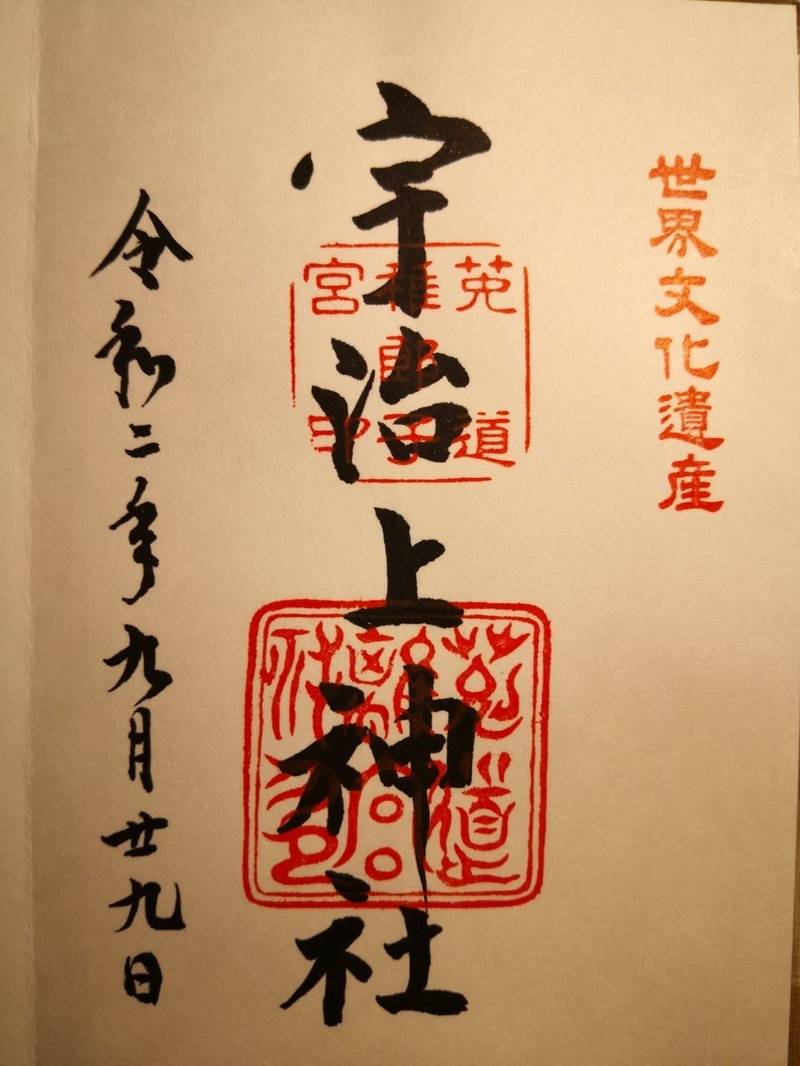 世界文化遺産
宇治上神社
菟道
稚郎子
宮印
令和二年九月廿九日